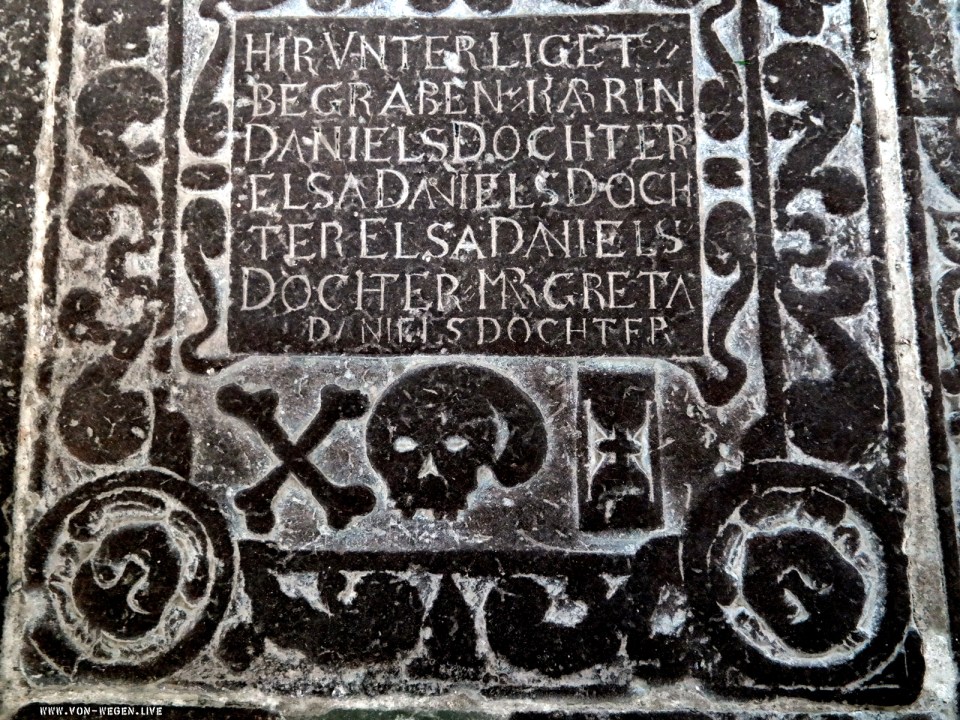 HIR VNTER LIGET
BEGRABEN KARIN
DANIELS DOCHTER
ELSA DANIELS DOCH
TER ELSA DANIELS
DOCHTER MARGRETA
DANIELS DOCHTER
WWW.VON-WEGEN.LIVE